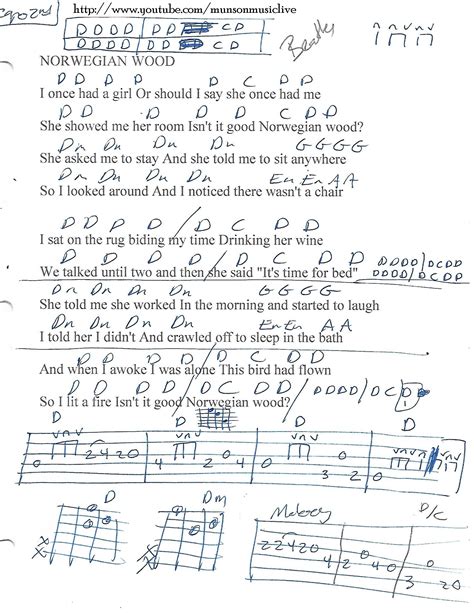 Capo 2nd http://www.youtube.com/munsonmusiclive
D D D D | D D C D
D D D D | D D C D
Beatles
NORWEGIAN WOOD
D D D D D C D D
I once had a girl Or should I say she once had me
D D D D D C D D
She showed me her room Isn't it good Norwegian wood?
Dm Dm Dm Dm G G G G
She asked me to stay And she told me to sit anywhere
Dm Dm Dm Dm Em Em A A
So I looked around And I noticed there wasn't a chair
D D D D / D C D D
I sat on the rug biding my time Drinking her wine
D D D D / D C D D DDDD/DCDD
We talked until two and then she said "It's time for bed" DDDD/DCDD
Dm Dm Dm Dm G G G G
She told me she worked In the morning and started to laugh
Dm Dm Dm Dm Em Em A A
I told her I didn't And crawled off to sleep in the bath
D D D D / D C D D
And when I awoke I was alone This bird had flown
D D D D / D C D D / DDDD / DCDD
So I lit a fire Isn't it good Norwegian wood?
D D D D
0 2420 4 2 0 4 0 3 2 0
D Dm Melody D/C
xx xx 22420 4 2 0 4 0 3 20